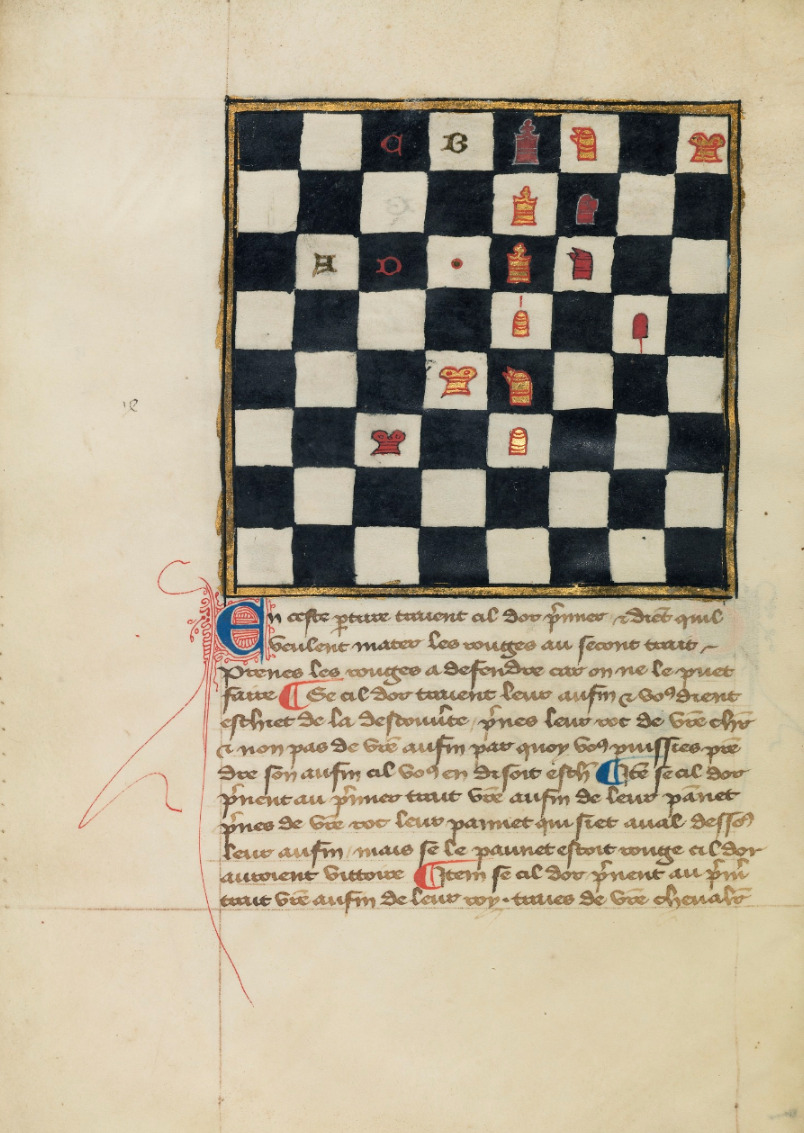 C B
A D
En ceste pture traient cil dor pmier ⁊ diēt quil
veulent mater les rouges au secont trait ~
Prenes les rouges a defendre car on ne le puet
faire ¶ Se cil dor traient leur aufin ⁊ vo⁹ dient
eschiet de la descouūte / pnes leur roc de vr̄e chlr
⁊ non pas de vr̄e aufin par quoy vo⁹ puissies prē
dre son aufin cil vo⁹ en disoit esch ¶ Itē se cil dor
pnent au pmier trait vr̄e aufin de leur pānet
pnes de vr̄e roc leur pannet qui siet aual desso⁹
leur aufin / mais se le paunet estoit rouge cil dor
auroient victoire ¶ Item se cil dor pnent au pm̄
trait vr̄e aufin de leur roy · traies de vr̄e cheualr